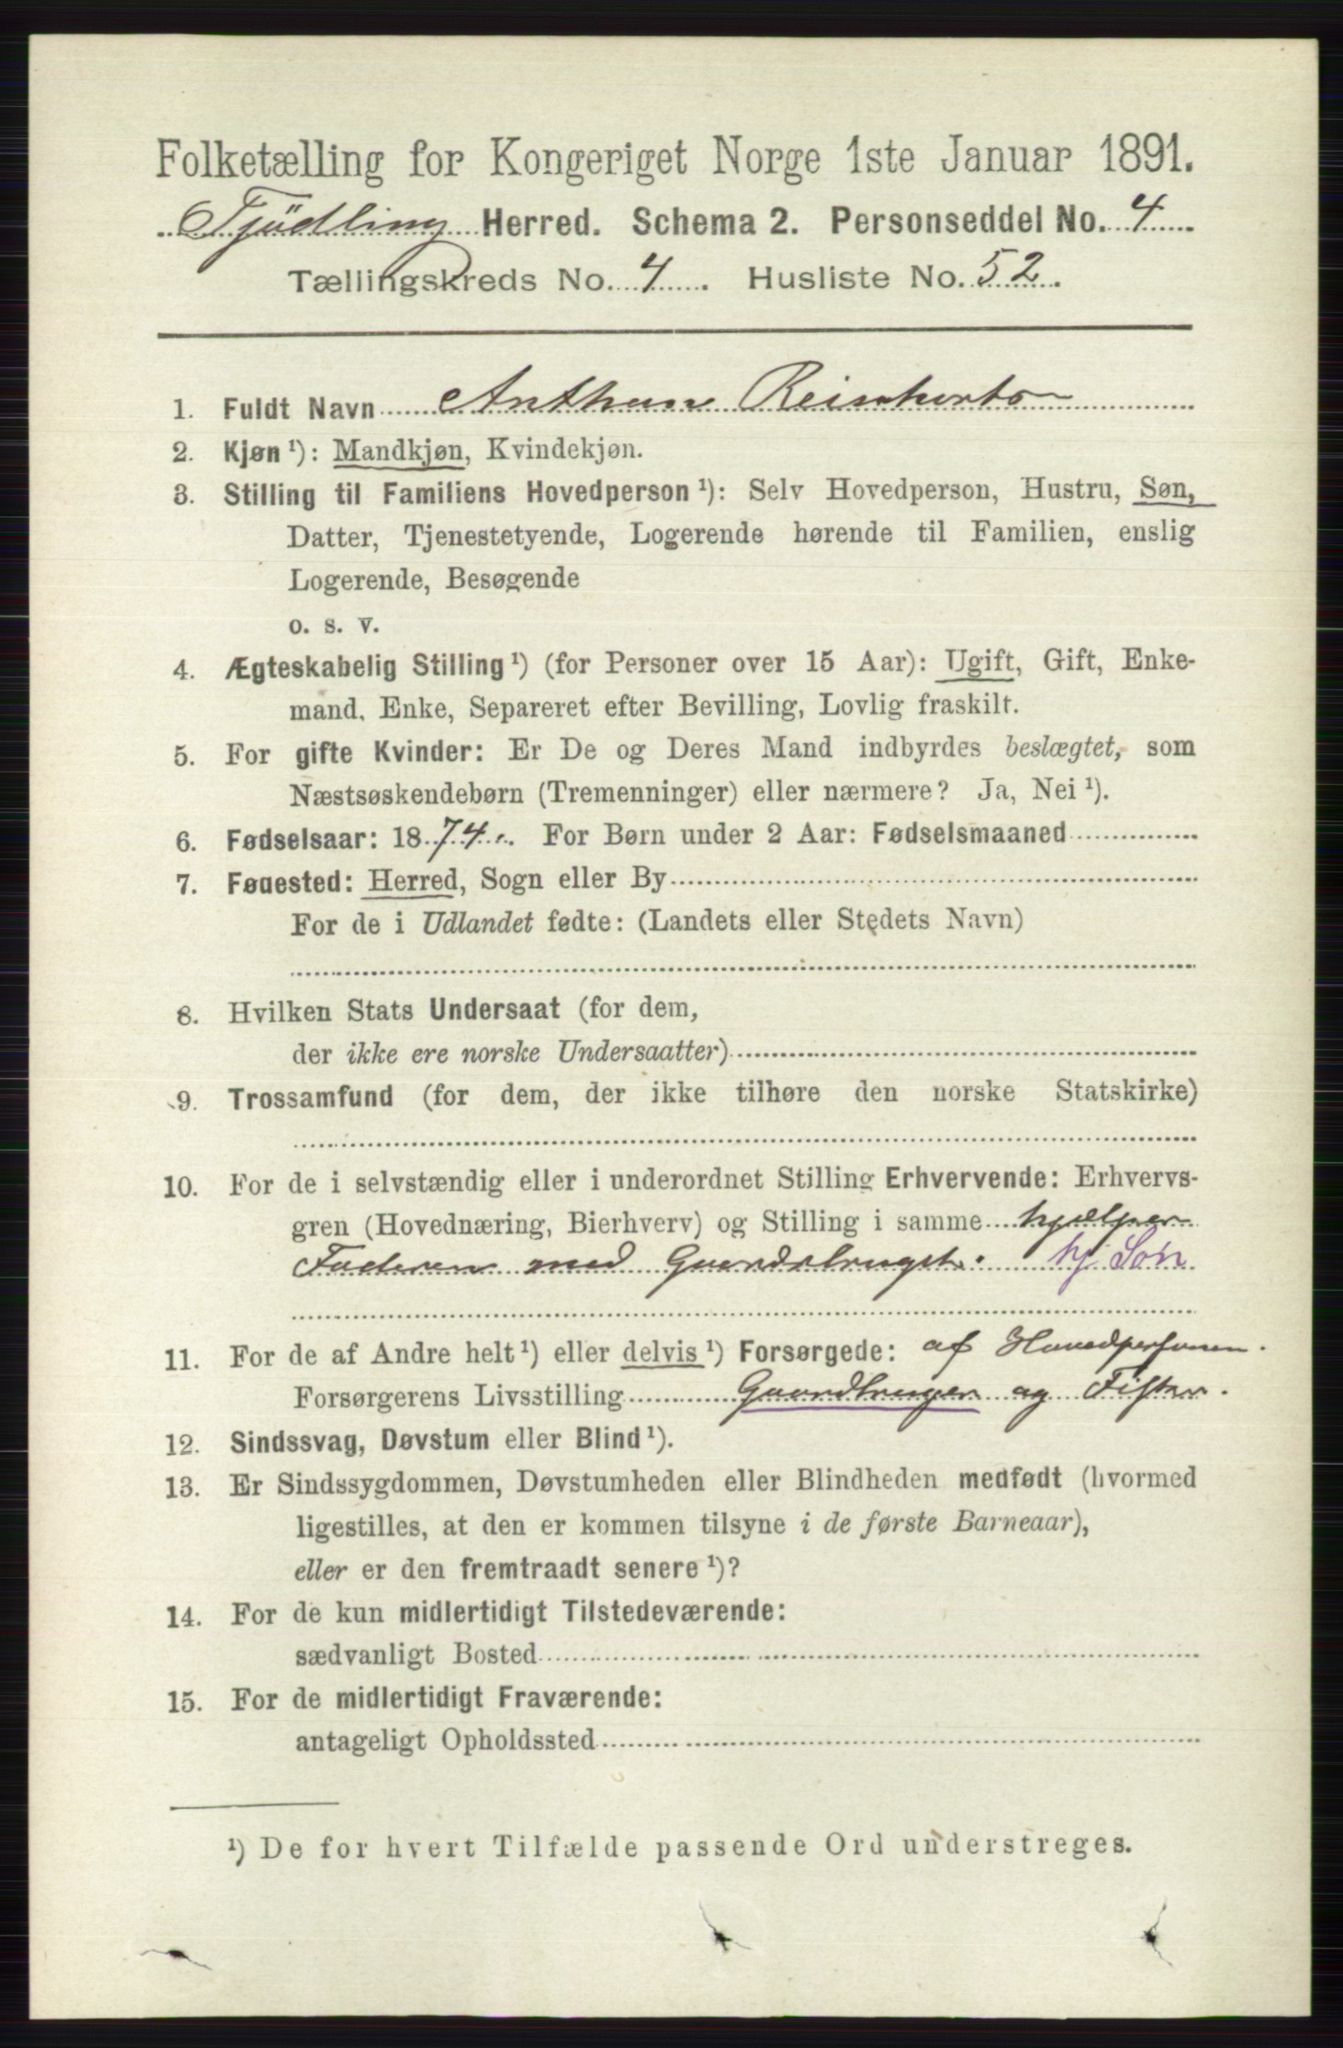 Folketælling for Kongeriget Norge 1ste Januar 1891.
Tjødling Herred. Schema 2. Personseddel No. 4
Tællingskreds No. 4. Husliste No. 52.
1. Fuldt Navn Anthon
2. Kjøn ¹): Mandkjøn, Kvindekjøn.
3. Stilling til Familiens Hovedperson ¹): Selv Hovedperson, Hustru, Søn,
Datter, Tjenestetyende, Logerende hørende til Familien, enslig
Logerende, Besøgende
o. s. v.
4. Ægteskabelig Stilling ¹) (for Personer over 15 Aar): Ugift, Gift, Enke-
mand, Enke, Separeret efter Bevilling, Lovlig fraskilt.
5. For gifte Kvinder: Er De og Deres Mand indbyrdes beslægtet, som
Næstsøskendebørn (Tremenninger) eller nærmere? Ja, Nei ¹).
6. Fødselsaar: 1874. For Børn under 2 Aar: Fødselsmaaned
7. Fødested: Herred, Sogn eller By
For de i Udlandet fødte: (Landets eller Stedets Navn)
8. Hvilken Stats Undersaat (for dem,
der ikke ere norske Undersaatter)
9. Trossamfund (for dem, der ikke tilhøre den norske Statskirke)
10. For de i selvstændig eller i underordnet Stilling Erhvervende: Erhvervs-
gren (Hovednæring, Bierhverv) og Stilling i samme hjælper
Faderen med Gaardsbruget. hj Søn
11. For de af Andre helt ¹) eller delvis ¹) Forsørgede: af Hovedpersonen.
Forsørgerens Livsstilling Gaardbruger og Fisker.
12. Sindssvag, Døvstum eller Blind ¹).
13. Er Sindssygdommen, Døvstumheden eller Blindheden medfødt (hvormed
ligestilles, at den er kommen tilsyne i de første Barneaar),
eller er den fremtraadt senere ¹)?
14. For de kun midlertidigt Tilstedeværende:
sædvanligt Bosted
15. For de midlertidigt Fraværende:
antageligt Opholdssted
¹) De for hvert Tilfælde passende Ord understreges.